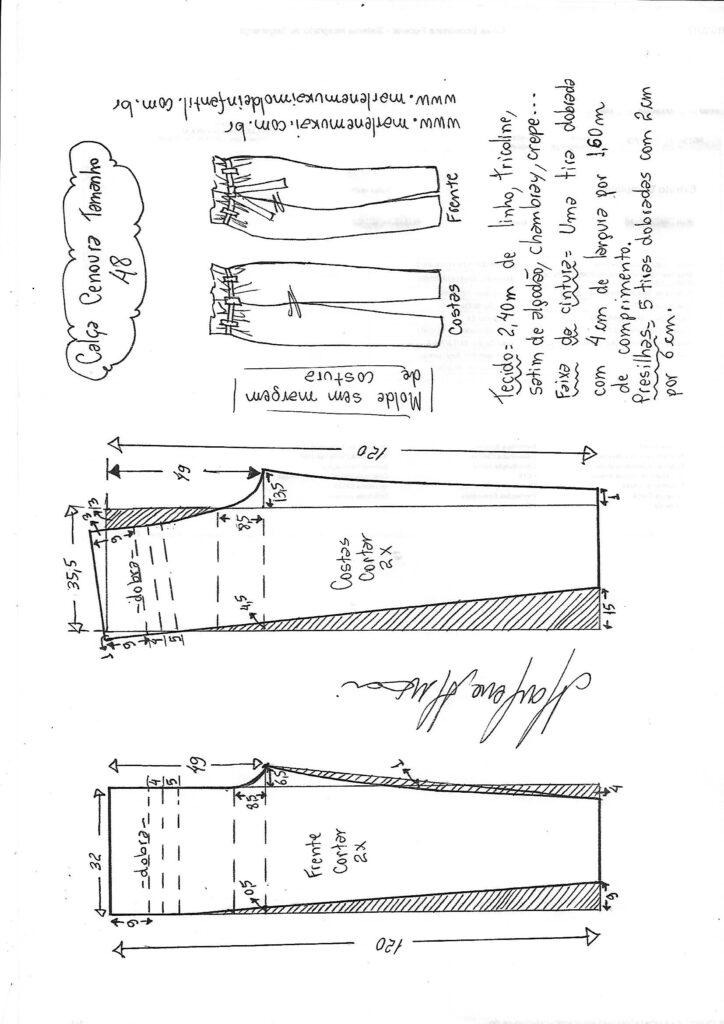 Calça Cenoura Tamanho
48
www.marlenemukai.com.br
www.marlenemukaimoldeinfantil.com.br
Costas
Frente
Molde sem margem
de costura
Tecido= 2,40m de linho, tricoline,
setim de algodão, chambray, crepe...
Faixa da cintura= Uma tira dobrada
com 4cm de largura por 1,60m
de comprimento.
Presilhas= 5 tiras dobradas com 2cm
por 6cm.
32
9
-dobra-
4
5
49
8,5
6,5
0,5
1
Frente
Cortar
2x
4
9
120
Marlene Mukai
35,5
3
3
1
9
9
-dobra-
4
5
49
8,5
13,5
4,5
Costas
Cortar
2x
1
15
120